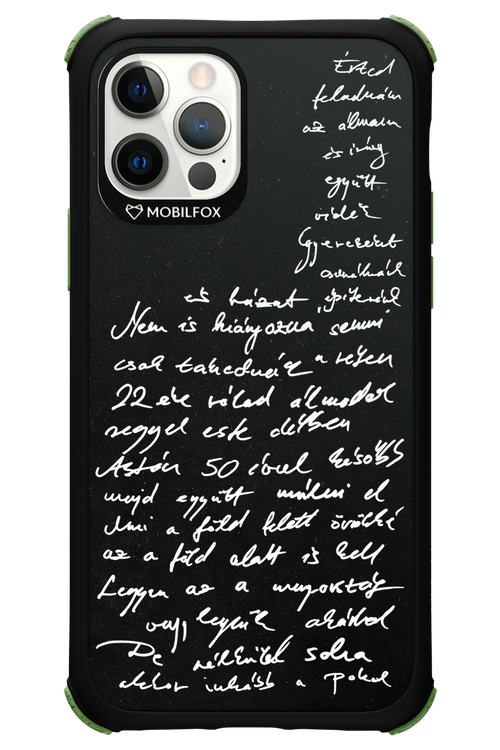 MOBILFOX
Érted
feladnám
az álmom
és irány
együtt
vidék
Gyerekeket
csinálnánk
és házat építenénk
Nem is hiányozna semmi
csak takednék a
22 éve rólad álmodok
reggel este délben
Aztán 50 évvel később
majd együtt múlni el
Ami a föld felett örökké
az a föld alatt is kell
Legyen az a mennyország
vagy legyünk akárhol
De nélküled soha
akkor inkább a Pokol